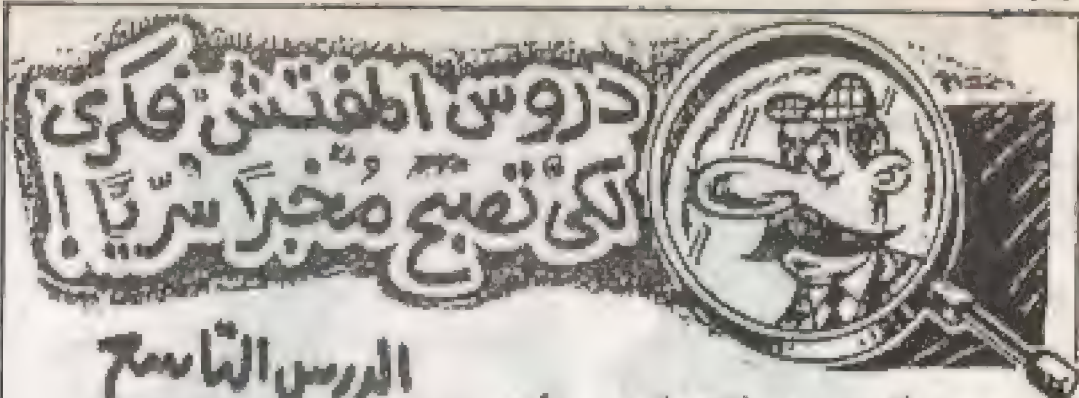 دروس المفتش فكرى
لكى تصبح مُخبرًا سرّيًّا!
الدرس التاسع